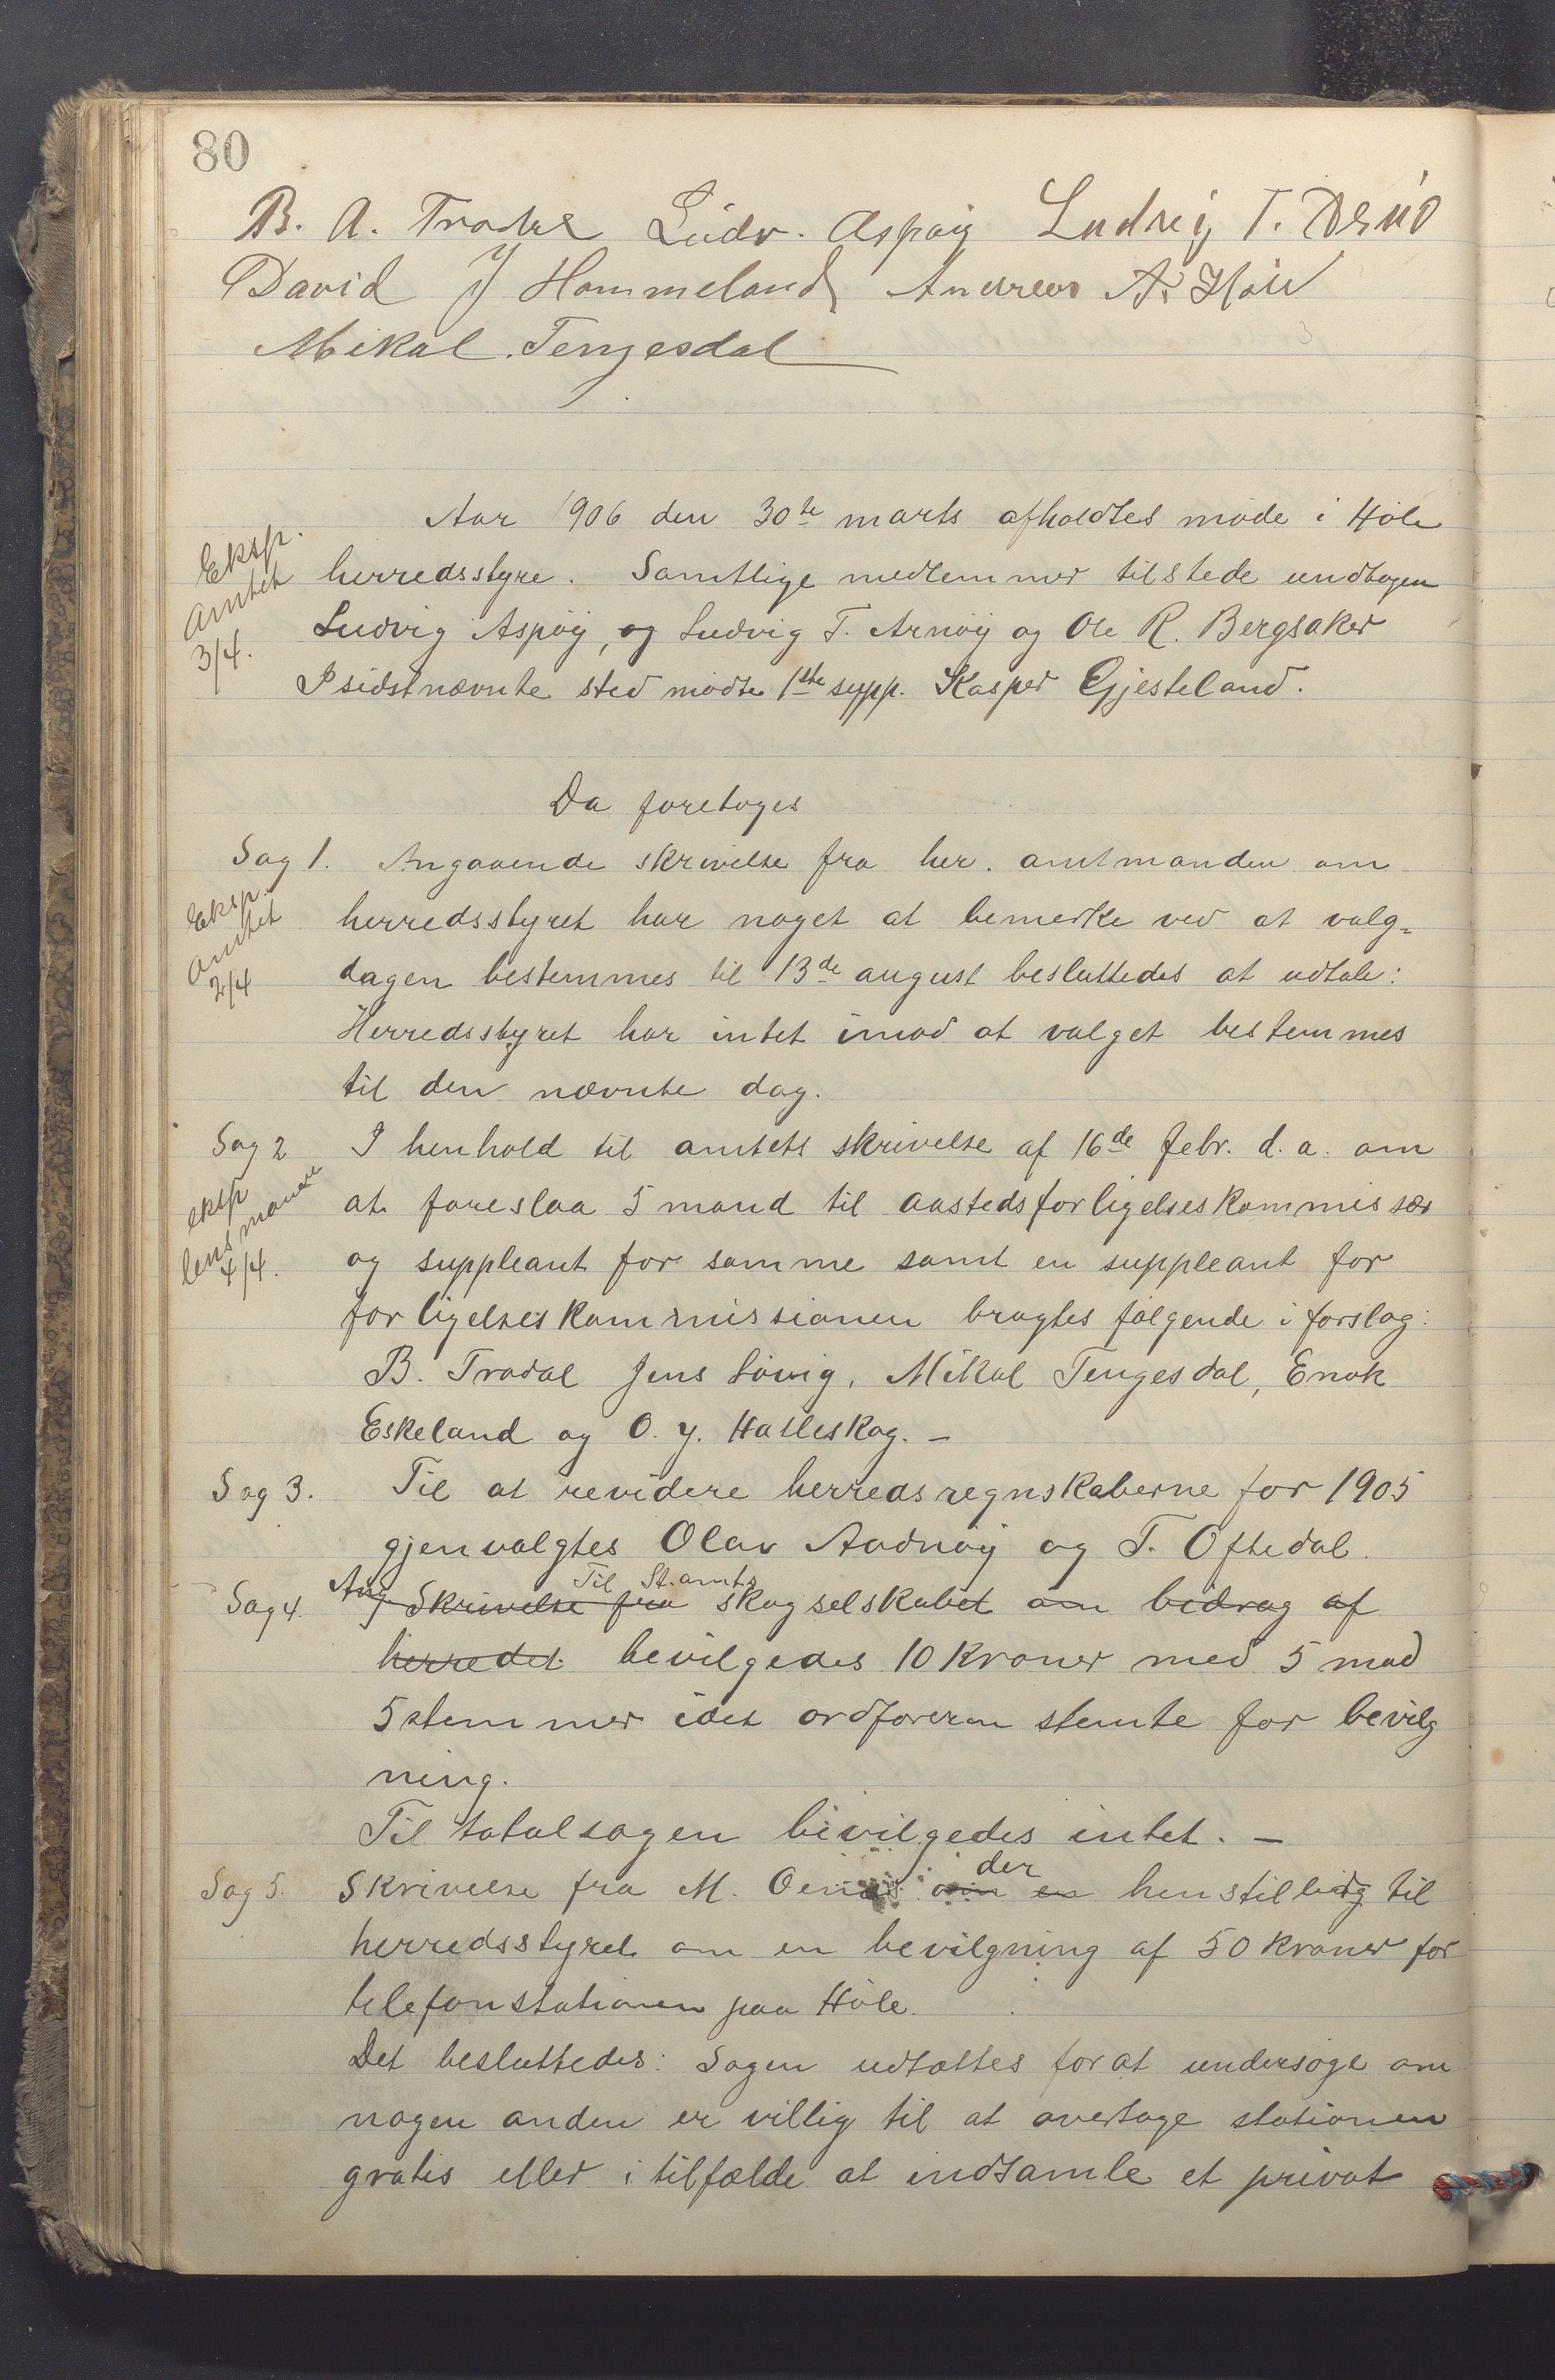 80
B. A. Tradal Ludv. Aspøy Ludvig T. Arnø
David J Hommeland Andreas A. Høle
Mikal Tengesdal
Aar 1906 den 30te marts afholdtes møde i Høle
Eksp.
amtet
3/4.
herredsstyre. Samtlige medlemmer tilstede undtagen
Ludvig Aspøy, og Ludvig T. Arnøy og Ole R. Bergsaker
I sidstnævnte sted mødte 1ste supp. Kasper Gjesteland.
Da foretoges
Sag 1. Angaaende skrivelse fra her. amtmanden om
Eksp.
amtet
2/4
herredsstyret har noget at bemerke ved at valg-
dagen bestemmes til 13de august besluttedes at udtale:
Herredsstyret har intet imod at valget bestemmes
til den nævnte dag.
Sag 2 I henhold til amtets skrivelse af 16de febr. d. a. om
eksp
lensmanden
4/4.
at foreslaa 5 mand til aastedsforligelseskommissær
og suppleant for samme samt en suppleant for
forligelseskommissionen bragtes følgende i forslag:
B. Tradal Jens Løvig, Mikal Tengesdal, Enok
Eskeland og O. J. Halleskog. –
Sag 3. Til at revidere herredsregnskaberne for 1905
gjenvalgtes Olav Aadnøy og T. Oftedal.
Til St. amts
Sag 4. Ang Skrivelse fra skogselskabet om bidrag af
herredet bevilgedes 10 kroner med 5 mod
5 stemmer idet ordføreren stemte for bevilg
ning.
Til totalsagen bevilgedes intet. –
der
Sag 5. Skrivelse fra M. om en henstilling til
herredsstyret om en bevilgning af 50 kroner for
telefonstationen paa Høle.
Det besluttedes: Sagen udsættes for at undersøge om
nogen anden er villig til at overtage stationen
gratis eller i tilfælde at indsamle et privat